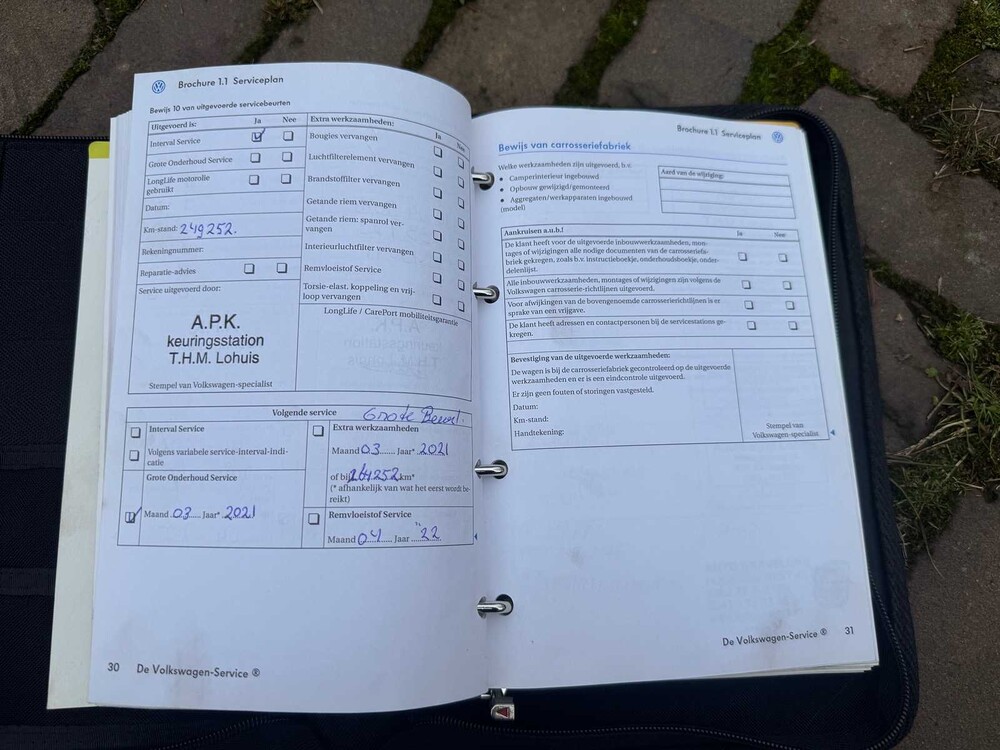 Brochure 1.1 Serviceplan
Bewijs 10 van uitgevoerde servicebeurten
Uitgevoerd is: Ja Nee
Interval Service
Grote Onderhoud Service
LongLife motorolie
gebruikt
Datum:
Km-stand: 249252.
Rekeningnummer:
Reparatie-advies
Service uitgevoerd door:
A.P.K.
keuringsstation
T.H.M. Lohuis
Stempel van Volkswagen-specialist
Extra werkzaamheden: Ja Nee
Bougies vervangen
Luchtfilterelement vervangen
Brandstoffilter vervangen
Getande riem vervangen
Getande riem: spanrol ver-
vangen
Interieurluchtfilter vervangen
Remvloeistof Service
Torsie-elast. koppeling en vrij-
loop vervangen
LongLife / CarePort mobiliteitsgarantie
Volgende service
Grote Beurt.
Interval Service
Volgens variabele service-interval-indi-
catie
Grote Onderhoud Service
Maand 03 Jaar* 2021
Extra werkzaamheden
Maand 03 Jaar* 2021
of bij 264252 km*
(* afhankelijk van wat het eerst wordt be-
reikt)
Remvloeistof Service
Maand 04 Jaar "22
30 De Volkswagen-Service ®
Brochure 1.1 Serviceplan
Bewijs van carrosseriefabriek
Welke werkzaamheden zijn uitgevoerd, b.v.
• Camperinterieur ingebouwd
• Opbouw gewijzigd/gemonteerd
• Aggregaten/werkapparaten ingebouwd
(model)
Aard van de wijziging:
Aankruisen a.u.b.! Ja Nee
De klant heeft voor de uitgevoerde inbouwwerkzaamheden, mon-
tages of wijzigingen alle nodige documenten van de carrosseriefa-
briek gekregen, zoals b.v. instructieboekje, onderhoudsboekje, onder-
delenlijst.
Alle inbouwwerkzaamheden, montages of wijzigingen zijn volgens de
Volkswagen carrosserie-richtlijnen uitgevoerd.
Voor afwijkingen van de bovengenoemde carrosserierichtlijnen is er
sprake van een vrijgave.
De klant heeft adressen en contactpersonen bij de servicestations ge-
kregen.
Bevestiging van de uitgevoerde werkzaamheden:
De wagen is bij de carrosseriefabriek gecontroleerd op de uitgevoerde
werkzaamheden en er is een eindcontrole uitgevoerd.
Er zijn geen fouten of storingen vastgesteld.
Datum:
Km-stand:
Handtekening:
Stempel van
Volkswagen-specialist
De Volkswagen-Service ® 31